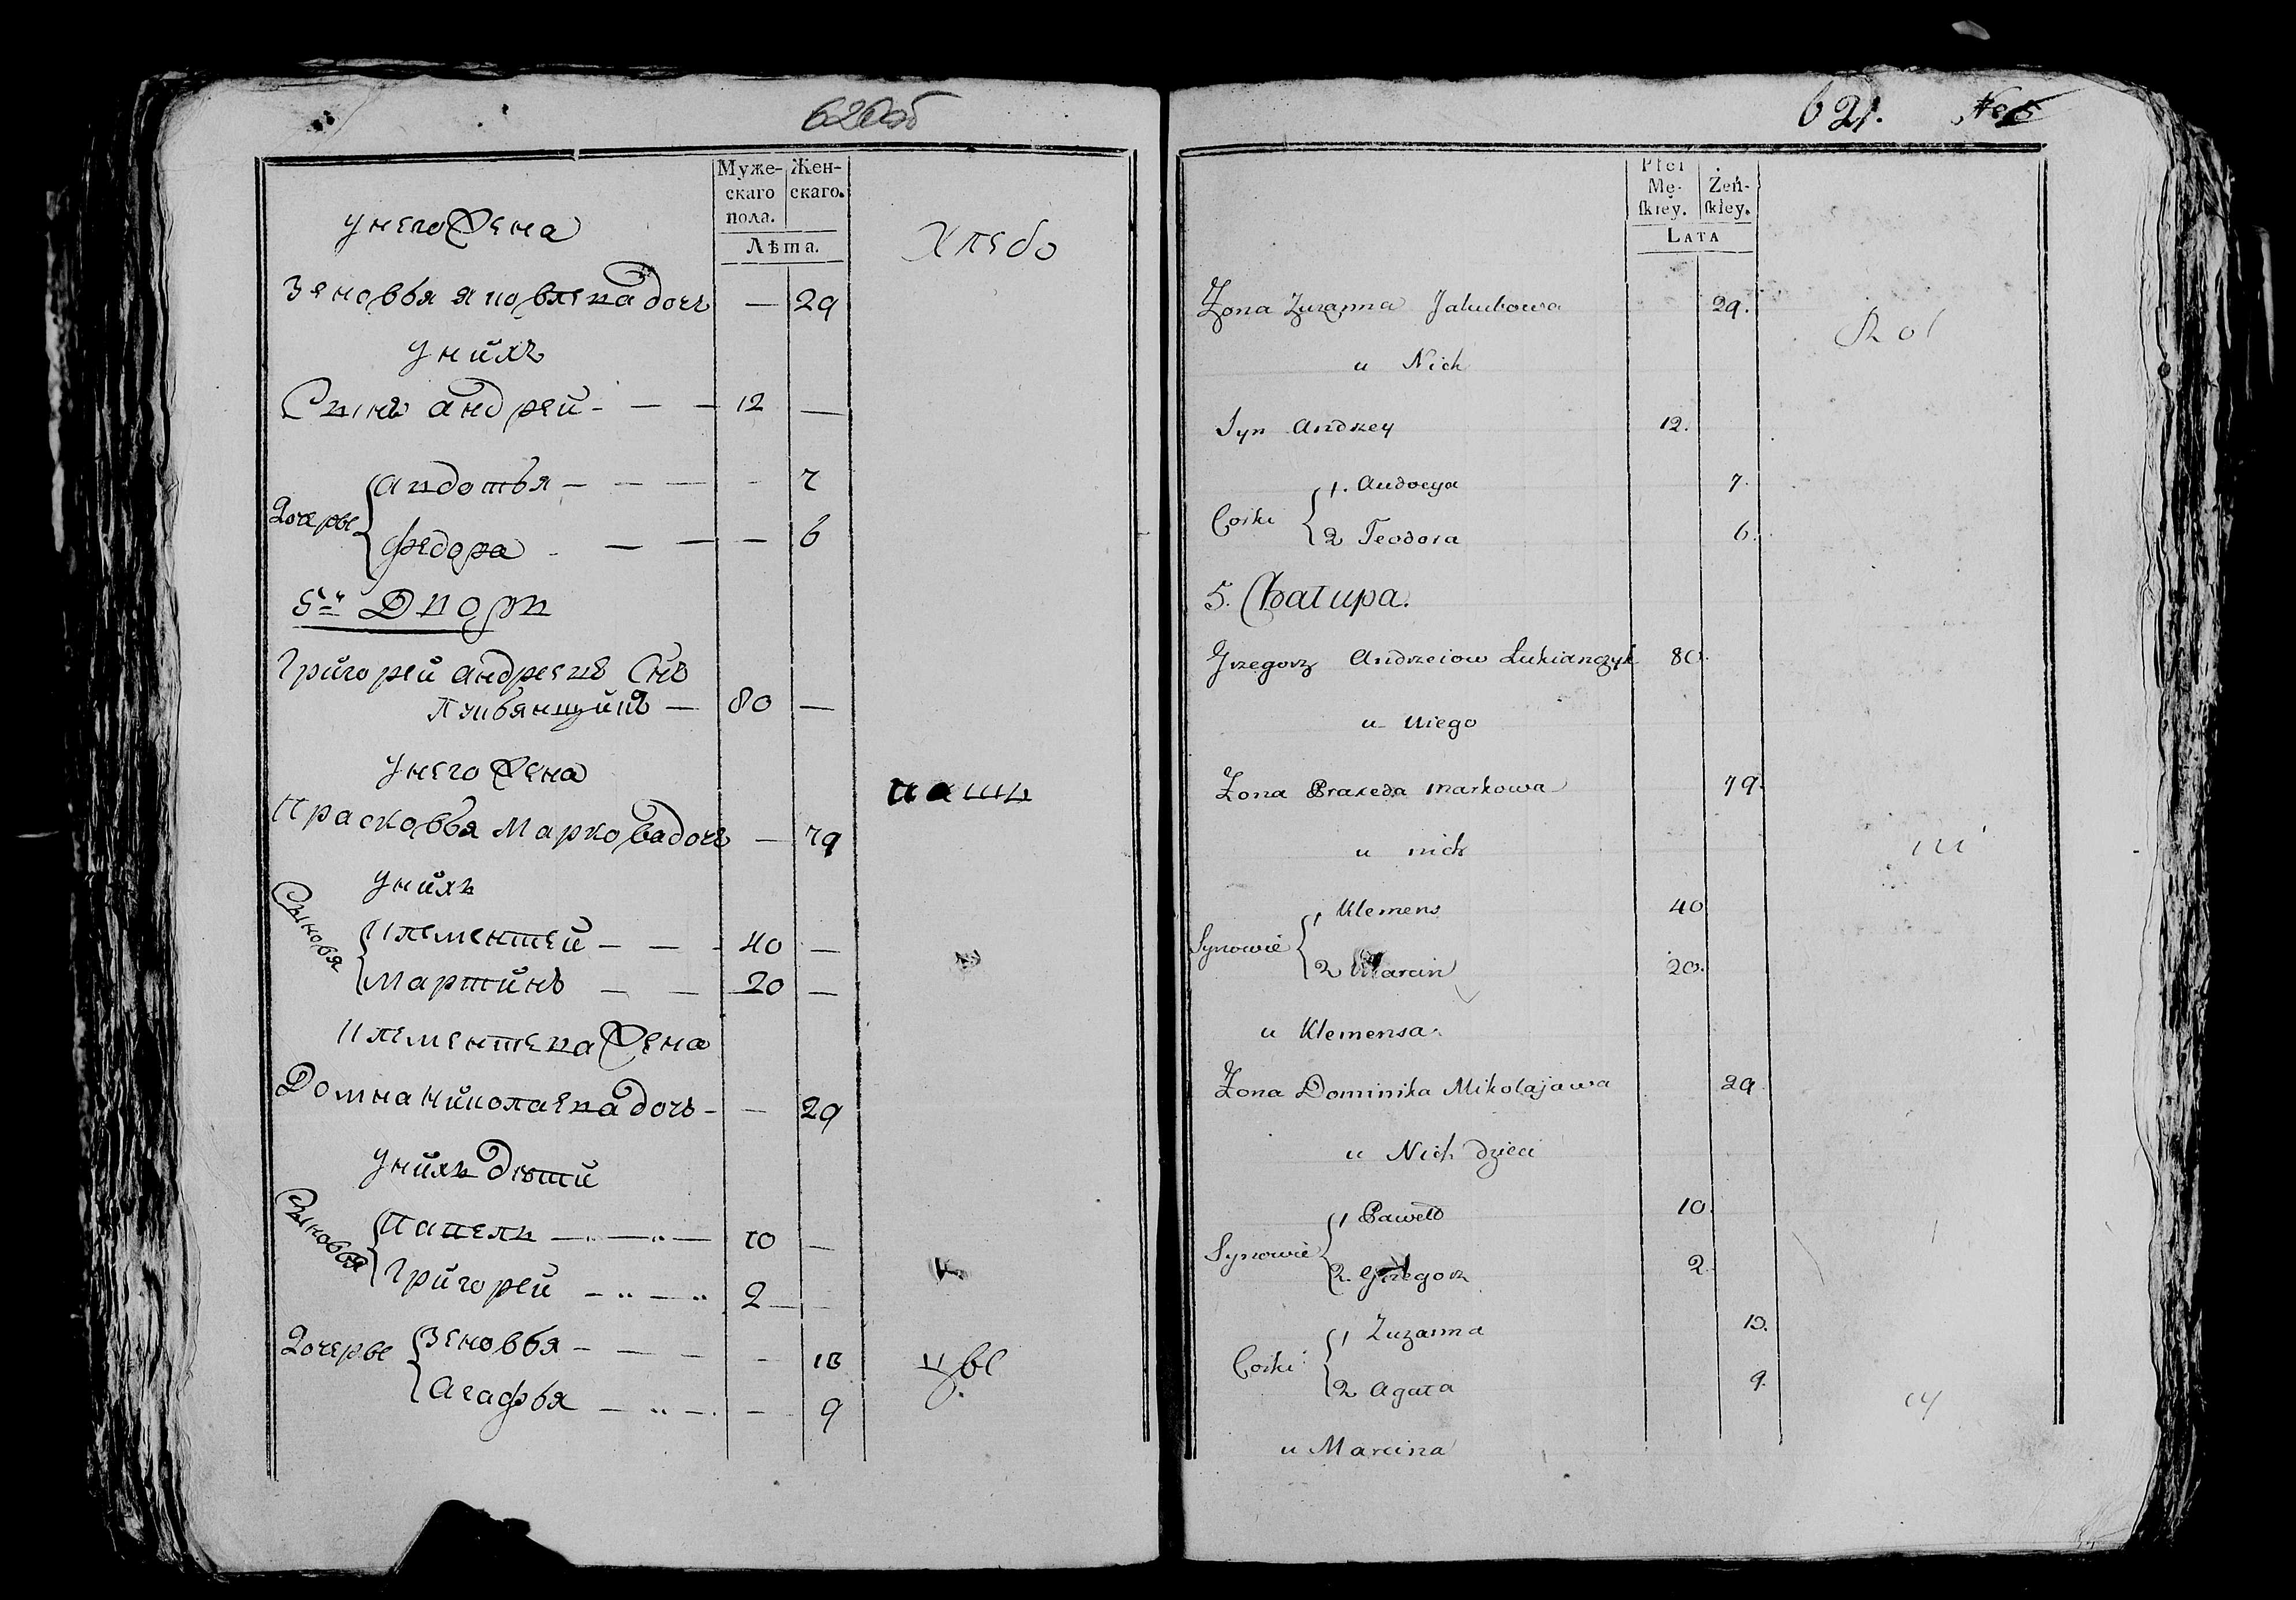 620об
Муже-
скаго
пола.
Жен-
скаго.
Лѣта.
Хлебо
у него Жена
Зеновья яковлева дочь — 29
у нихъ
Сынъ андрей — — 12 —
Дочерье
авдотья — — — — 7
федора — — — 6
5й Дворъ
Григорей андреевъ Снъ
Лукьянцукъ — 80 —
у него Жена
пашъ
Прасковья Маркова дочь — 79
у нихъ
Сыновья
Клементей — — 40 —
Мартинъ — — 20 —
Клементева Жена
Домна Николаева дочь — — 29
у нихъ дѣти
Сыновья
Павелъ — — — 10 —
Григорей — — 2 —
Дочерье
Зеновья — — — — 13
Агафья — — — 9
цвс
621.
Płci
Mę-
ſkiey.
Żeń-
ſkiey.
LATA
Żona Zuzanna Jakubowa 29.
Rol
u Nich
Syn Andrzey 12.
Corki
1. Audocya 7.
2 Teodora 6.
5. Chałupa.
Grzegorz Andrzeiow Lukianczyk 80.
u Niego
Żona Praxeda Markowa 79.
u nich
ni
Synowie
1 Klemens 40
2 Marcin 20.
u Klemensa.
Żona Dominika Mikolajowa 29.
u Nich dzieci
Synowie
1 Paweł 10.
2. Grzegorz 2.
Corki
1 Zuzanna 13.
2 Agata 9.
cy
u Marcina